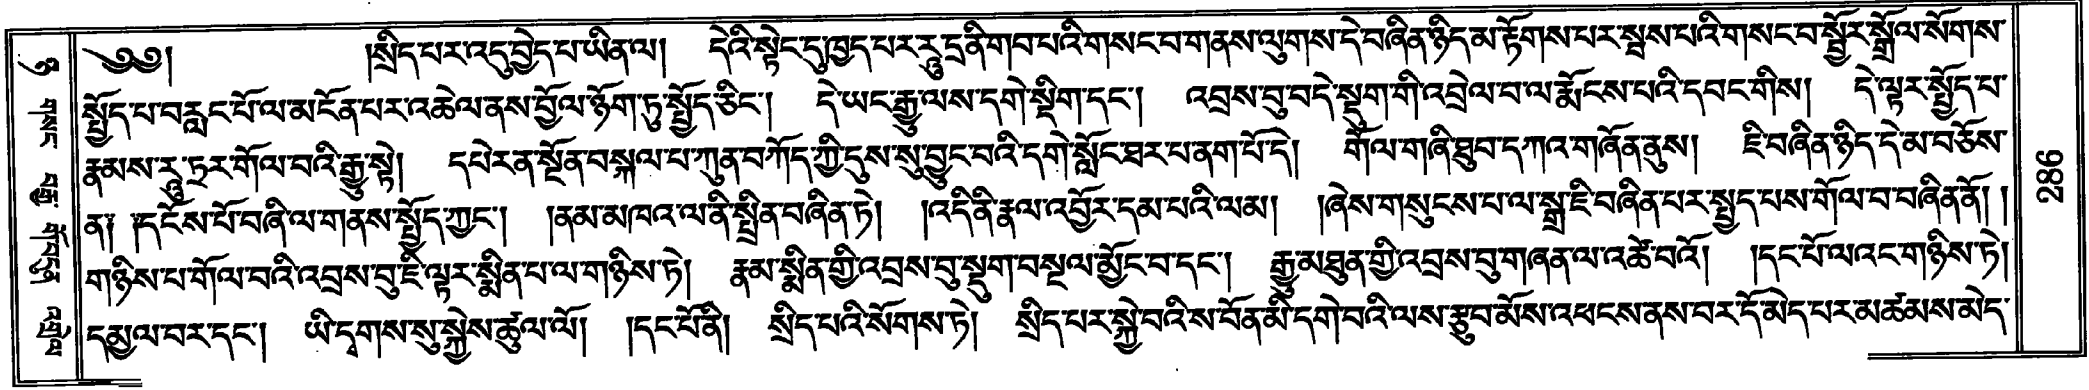 ༄༅། །སྲིད་པར་འདུ་བྱེད་པ་ཡིན་ལ། དེའི་སྟེང་དུ་ཁྱད་པར་རུ་དྲ་ནི་གབ་པའི་གསང་བ་གནས་ལུགས་དེ་བཞིན་ཉིད་མ་རྟོགས་པར་སྦས་པའི་གསང་བ་སྦྱོར་སྒྲོལ་སོགས་
སྤྱོད་པ་བརླང་པོ་ལ་མངོན་པར་འཆེལ་ནས་བྱོལ་ཉོག་ཏུ་སྤྱོད་ཅིང་། དེ་ཡང་རྒྱུ་ལས་དགེ་སྡིག་དང་། འབྲས་བུ་བདེ་སྡུག་གི་འབྲེལ་བ་ལ་རྨོངས་པའི་དབང་གིས། དེ་ལྟར་སྤྱོད་པ་
རྣམས་རུ་ཏྲར་གོལ་བའི་རྒྱུ་སྟེ། དཔེར་ན་སྔོན་བསྐལ་པ་ཀུན་བཀོད་ཀྱི་དུས་སུ་བྱུང་བའི་དགེ་སློང་ཐར་པ་ནག་པོ་དེ། གོལ་གཞི་ཐུབ་དཀའ་གཞོན་ནུས། ཇི་བཞིན་ཉིད་དེ་མ་བཅོས་
ན། །དངོས་པོ་བཞི་ལ་གནས་སྤྱོད་ཀྱང་། །ནམ་མཁའ་ལ་ནི་སྤྲིན་བཞིན་ཏེ། །འདི་ནི་རྣལ་འབྱོར་དམ་པའི་ལམ། །ཞེས་གསུངས་པ་ལ་སྒྲ་ཇི་བཞིན་པར་སྤྱད་པས་གོལ་བ་བཞིན་ནོ། །
གཉིས་པ་གོལ་བའི་འབྲས་བུ་ཇི་ལྟར་སྨིན་པ་ལ་གཉིས་ཏེ། རྣམ་སྨིན་གྱི་འབྲས་བུ་སྡུག་བསྔལ་མྱོང་བ་དང་། རྒྱུ་མཐུན་གྱི་འབྲས་བུ་གཞན་ལ་འཚེ་བའོ། །དང་པོ་ལའང་གཉིས་ཏེ།
དམྱལ་བར་དང་། ཡི་དྭགས་སུ་སྐྱེས་ཚུལ་ལོ། །དང་པོ་ནི། སྲིད་པའི་སོགས་ཏེ། སྲིད་པར་སྐྱེ་བའི་ས་བོན་མི་དགེ་བའི་ལས་རྩུབ་མོས་འཕངས་ནས་བར་དོ་མེད་པར་མཚམས་མེད་